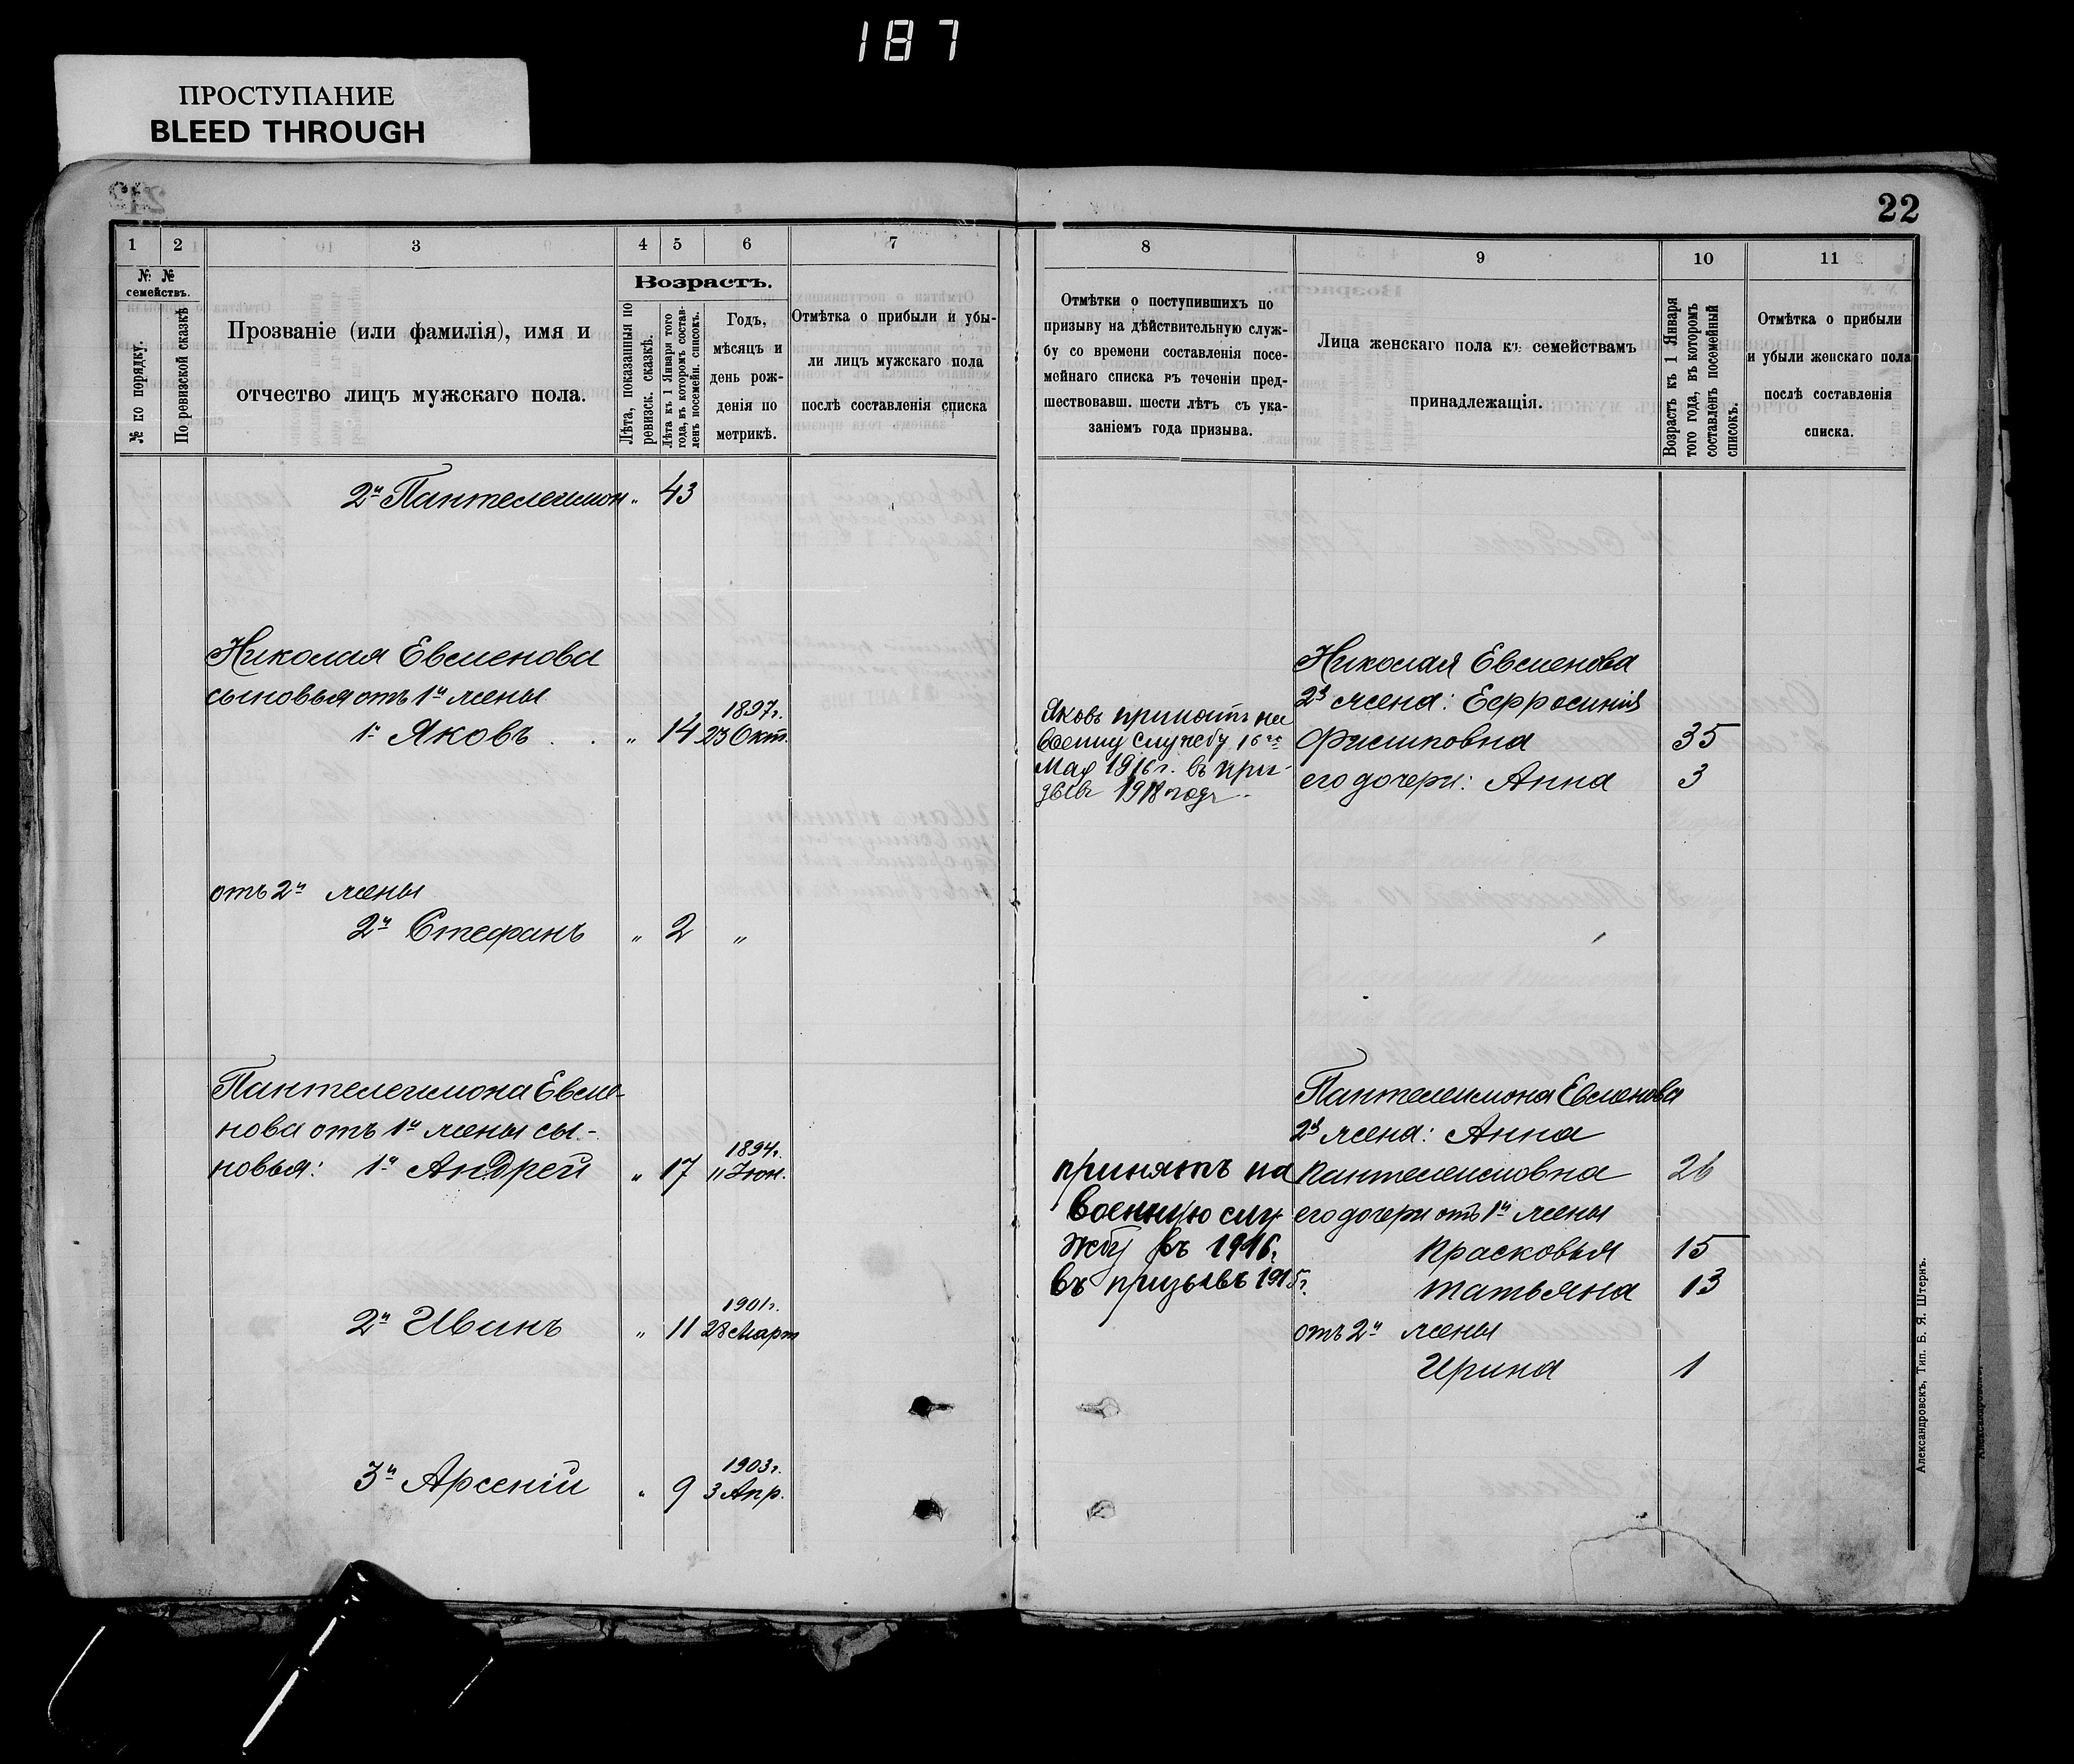 187
ПРОСТУПАНИЕ
BLEED THROUGH
22
1 2 3 4 5 6 7
№ №
семействъ.
№ по порядку.
По ревизской сказкѣ
Прозваніе (или фамилія), имя и
отчество лицъ мужскаго пола.
Возрастъ.
Лѣта, показанныя по
ревизск. сказкѣ.
Лѣта къ 1 Января того
года, въ которомъ состав-
ленъ посемейн. списокъ.
Годъ,
мѣсяцъ и
день рож-
денія по
метрикѣ.
Отмѣтка о прибыли и убы-
ли лицъ мужскаго пола
послѣ составленія списка
2й Пантелеимон „ 43
Николая Евменова
сыновья отъ 1й жены
1897г.
1й Яковъ . . „ 14 23 Окт.
отъ 2й жены
2й Стефанъ „ 2 „
Пантелеимона Евме-
нова отъ 1й жены сы-
1894г.
новья: 1й Андрей „ 17 11 Іюн.
1901г.
2й Иванъ „ 11 28 Март
1903г.
3й Арсеній „ 9 3 Апр.
8 9 10 11
Отмѣтки о поступившихъ по
призыву на дѣйствительную служ-
бу со времени составленія посе-
мейнаго списка въ теченіи пред-
шествовавш. шести лѣтъ съ ука-
заніемъ года призыва.
Лица женскаго пола къ семействамъ
принадлежащія.
Возрастъ къ 1 Января
того года, въ которомъ
составленъ посемейный
списокъ.
Отмѣтка о прибыли
и убыли женскаго пола
послѣ составленія
списка.
Яковъ принятъ на
военну службу 16го
Мая 1916г. въ при-
зывъ 1918 года
Николая Евменова
2я жена: Ефросинія
Филиповна 35
его дочери: Анна 3
принятъ на
военную слу
жбу въ 1916,
въ призывъ 1915г.
Пантелеимона Евменова
2я жена: Анна
Пантелеимовна 26
его дочери отъ 1й жены
Прасковья 15
Татьяна 13
отъ 2й жены
Ирина 1
Александровскъ, Тип. Б. Я. Штернъ.